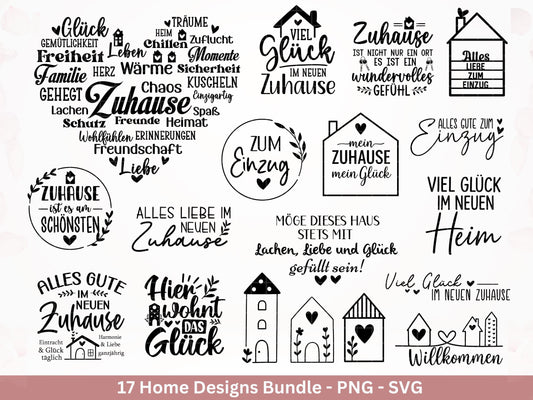 TRÄUME
Glück HEIM Zuflucht
GEMÜTLICHKEIT Leben Chillen Momente
Freiheit Wärme Sicherheit
Familie HERZ KUSCHELN
GEHEGT Chaos Einzigartig
Zuhause
Lachen Spaß
Schutz Freunde Heimat
Wohlfühlen ERINNERUNGEN
Freundschaft
Liebe
VIEL
Glück
IM NEUEN
ZUHAUSE
Zuhause
IST NICHT NUR EIN ORT
ES IST EIN
wundervolles
GEFÜHL
Alles
LIEBE
ZUM
EINZUG
ZUM
Einzug
mein
ZUHAUSE
mein Glück
ALLES GUTE ZUM
Einzug
ZUHAUSE
ist es am
SCHÖNSTEN
ALLES LIEBE IM
NEUEN
Zuhause
MÖGE DIESES HAUS
STETS MIT
Lachen, Liebe und Glück
gefüllt sein!
VIEL GLÜCK
IM NEUEN
Heim
ALLES GUTE
IM
NEUEN
Zuhause
Eintracht
& Glück
täglich
Harmonie
& Liebe
ganzjährig
Hier
wohnt
DAS
Glück
Viel Glück
IM NEUEN ZUHAUSE
Willkommen
17 Home Designs Bundle - PNG - SVG